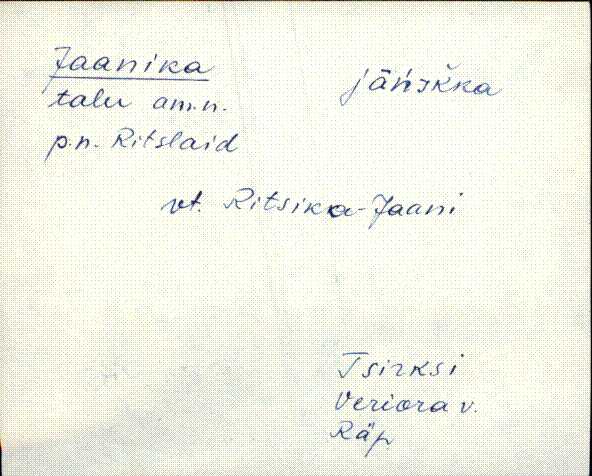 Jaanika jāńiǩka
talu am.n.
p.n. Ritslaid
vt. Ritsika-Jaani
Tsirksi
Veriora v.
Räp.